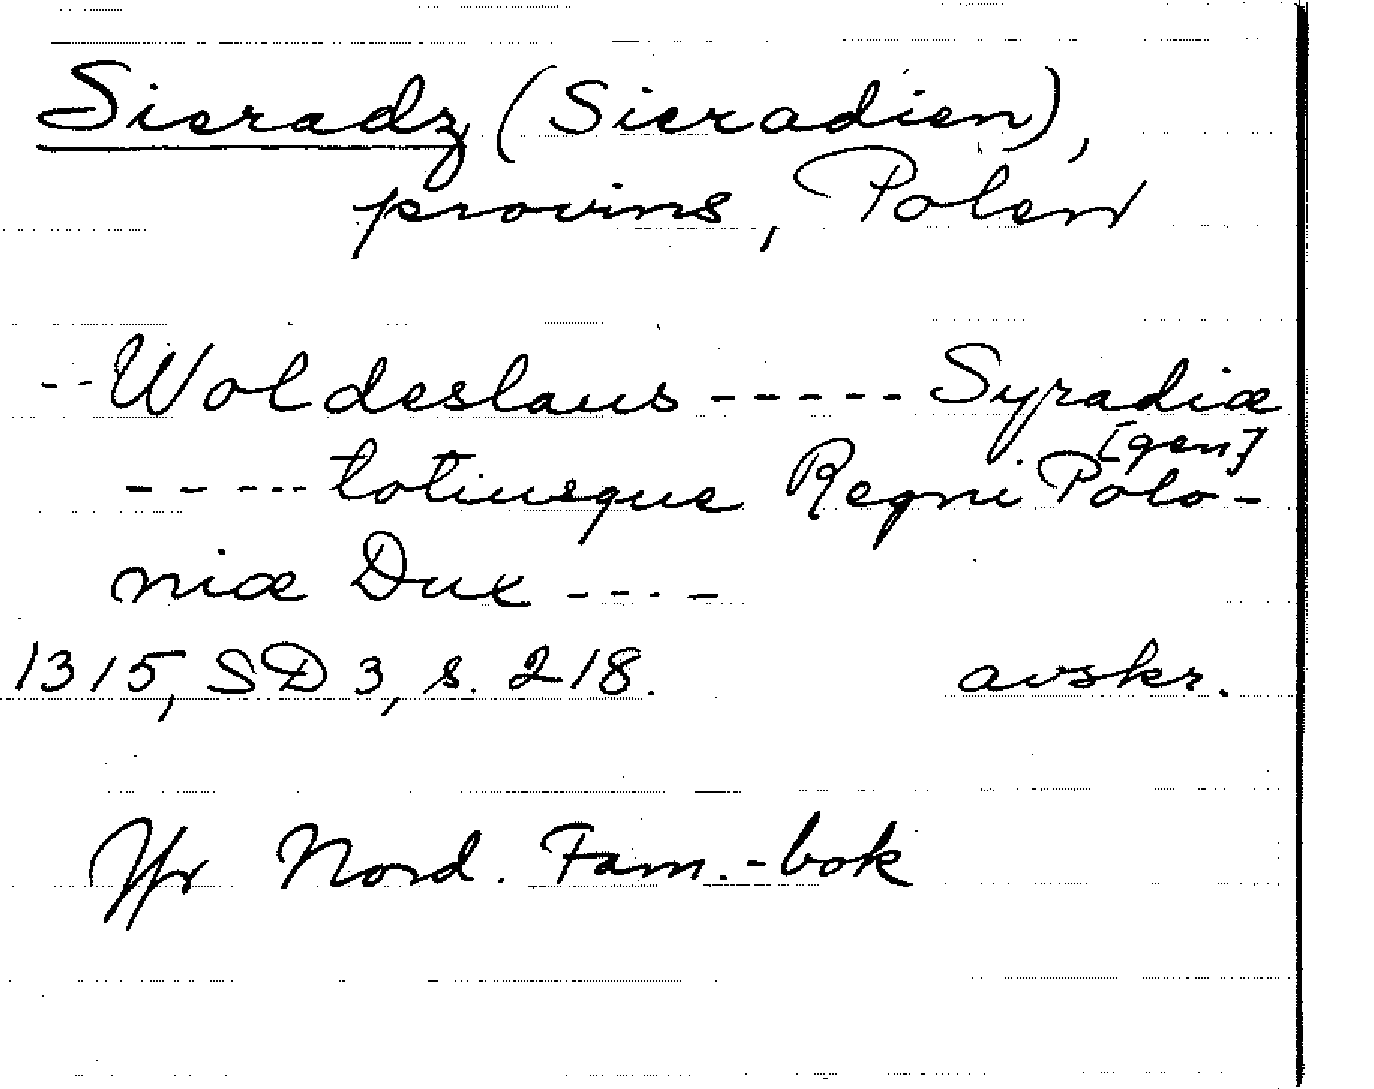 Sieradz (Sieradien),
provins, Polen
--Woldeslaus ----- Syradiæ
[gen]
----- totiusque Regni Polo-
niæ Dux ----
1315, SD 3, s. 218. avskr.
Jfr Nord. Fam.-bok